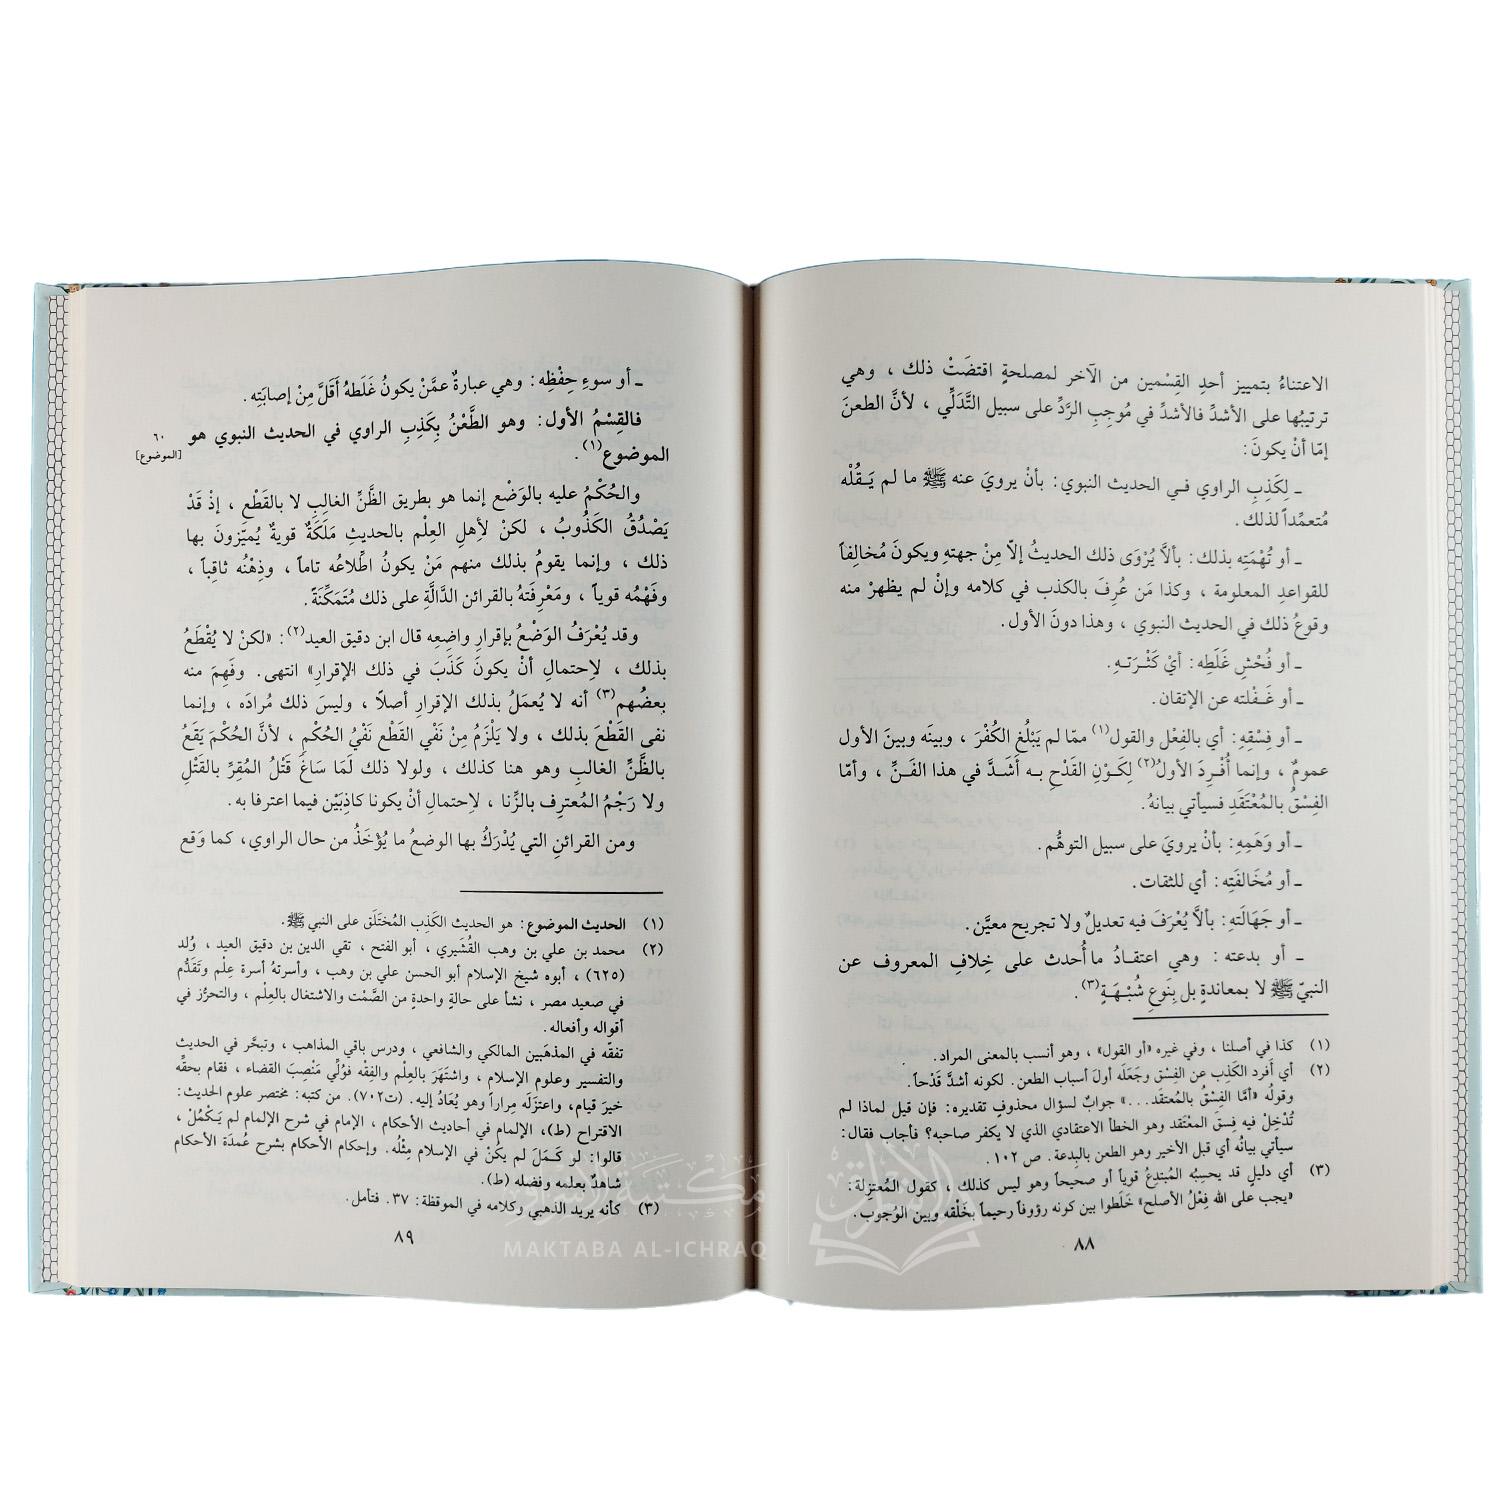 الاعتناءُ بتمييز أحدِ القِسْمين من الآخر لمصلحةٍ اقتضَتْ ذلك ، وهي
ترتيبُها على الأشدِّ فالأشدِّ في مُوجِبِ الرَّدِّ على سبيل التَّدَلِّي ، لأنَّ الطعنَ
إمّا أنْ يكونَ:
ـ لِكَذِبِ الراوي فـي الحديث النبوي: بأنْ يرويَ عنه ﷺ ما لم يَـقُلْه
مُتعمِّداً لذلك.
ـ أو تُهْمَتِه بذلك: بألاَّ يُرْوَى ذلك الحديثُ إلاّ مِنْ جهتهِ ويكونَ مُخالِفاً
للقواعدِ المعلومة ، وكذا مَن عُرِفَ بالكذب في كلامه وإنْ لم يظهرْ منه
وقوعُ ذلك في الحديث النبوي ، وهذا دونَ الأول.
ـ أو فُحْشِ غَلَطِه: أيْ كَثْـرَتـهِ.
ـ أو غَـفْلته عن الإتقان.
ـ أو فِسْقِهِ: أي بالفِعْل والقول(١) ممّا لم يَبْلُغِ الكُفْرَ ، وبينَه وبينَ الأول
عمومٌ ، وإنما أُفْـرِدَ الأولُ(٢) لِكَـوْنِ القَدْحِ بـه أَشَدَّ في هذا الفَـنِّ ، وأمّا
الفِسْقُ بالمُعْتَقَدِ فسيأتي بيانهُ.
ـ أو وَهَمِهِ: بأنْ يرويَ على سبيل التوهُّم.
ـ أو مُخَالفَتِه: أي للثقات.
ـ أو جَهَالَتهِ: بألاَّ يُعْرَفَ فيه تعديلٌ ولا تجريح معيَّن.
ـ أو بدعته: وهي اعتقـادُ ما أُحدث على خِلافِ المعروف عن
النبيّ ﷺ لا بمعاندةٍ بل بِنَوعِ شُبْـهَـةٍ(٣).
(١) كذا في أصلنا ، وفي غيره «أو القول» ، وهو أنسب بالمعنى المراد.
(٢) أي أفرد الكَذِب عن الفِسْق وجَعَلَه أولَ أسباب الطعن. لكونه أشدَّ قَدْحاً.
وقولُه «أمَّا الفِسْقُ بالمُعتقَد...» جوابٌ لسؤال محذوفٍ تقديره: فإن قيل لماذا لم
تُدْخِلْ فيه فِسقَ المعْتَقد وهو الخطأ الاعتقادي الذي لا يكفر صاحبه؟ فأجاب فقال:
سيأتي بيانُه أي قبل الأخير وهو الطعن بالبِدعة. ص ١٠٢.
(٣) أي دليلٍ قد يحسبُه المُبتدِعُ قوياً أو صحيحاً وهو ليس كذلك ، كقول المُعتزِلة:
«يجب على الله فِعْلُ الأصلح» خَلَطوا بين كونه رؤوفاً رحيماً بخَلْقه وبين الوُجوب.
٨٨
ـ أو سوءِ حِفْظِه: وهي عبارةٌ عمَّنْ يكونُ غَلَطهُ أَقَلَّ مِنْ إصابَتِه.
فالقِسْمُ الأول: وهو الطَّعْنُ بِكَذِبِ الراوي في الحديث النبوي هو
الموضوع(١).
٦٠
[الموضوع]
والحُكْمُ عليه بالوَضْع إنما هو بطريق الظَّنِّ الغالبِ لا بالقَطْعِ ، إذ قَدْ
يَصْدُقُ الكَذُوبُ ، لكنْ لأِهلِ العِلْم بالحديثِ مَلَكَةٌ قويةٌ يُميّزونَ بها
ذلك ، وإنما يقومُ بذلك منهم مَنْ يكونُ اطِّلاعُه تاماً ، وذِهْنُه ثاقِباً ،
وفَهْمُه قوياً ، ومَعْرِفَتهُ بالقرائن الدَّالَّةِ على ذلك مُتَمَكِّنَةً.
وقد يُعْرَفُ الوَضْعُ بإقرارِ واضِعِه قال ابن دقيق العيد(٢): «لكنْ لا يُقْطَعُ
بذلك ، لاِحتمالِ أنْ يكونَ كَذَبَ في ذلك الإقرارِ» انتهى. وفَهِمَ منه
بعضُهم(٣) أنه لا يُعمَلُ بذلك الإقرارِ أصلاً ، وليسَ ذلك مُرادَه ، وإنما
نفى القَطْعَ بذلك ، ولا يَلْزَمُ مِنْ نَفْي القَطْع نَفْيُ الحُكْمِ ، لأنَّ الحُكْمَ يَقَعُ
بالظَّنِّ الغالبِ وهو هنا كذلك ، ولولا ذلك لَمَا سَاغَ قَتْلُ المُقِرِّ بالقَتْلِ
ولا رَجْمُ المُعترِفِ بالزِّنا ، لاِحتمالِ أنْ يكونا كاذِبَيْن فيما اعترفا به.
ومن القرائنِ التي يُدْرَكُ بها الوضعُ ما يُؤْخَذُ من حال الراوي، كما وَقع
(١) الحديث الموضوع: هو الحديث الكَذِب المُختَلَق على النبي ﷺ.
(٢) محمد بن علي بن وهب القُشَيري ، أبو الفتح ، تقي الدين بن دقيق العيد ، وُلد
(٦٢٥) ، أبوه شيخ الإسلام أبو الحسن علي بن وهب ، وأسرتهُ أسرة عِلْم وتَقَدُّم
في صعيد مصر ، نشأ على حالةٍ واحدةٍ من الصَّمْت والاشتغال بالعِلْم ، والتحرُّز في
أقواله وأفعاله.
تفقّه في المذهَبين المالكي والشافعي ، ودرس باقي المذاهب ، وتبحَّر في الحديث
والتفسير وعلوم الإسلام ، واشتَهَرَ بالعِلْم والفِقْه فوُلِّي مَنْصِبَ القضاء ، فقام بحقِّه
خيرَ قيام، واعتزَلَه مِراراً وهو يُعَادُ إليه. (ت٧٠٢). من كتبه: مختصر علوم الحديث:
الاقتراح (ط)، الإلمام في أحاديث الأحكام ، الإمام في شرح الإلمام لم يَـكْمُلْ ،
قالوا: لو كَـمَلَ لم يكُنْ في الإسلام مِثْلُه. وإحكام الأحكام بشرح عُمدَة الأحكام
شاهدٌ بعلمه وفضله (ط).
(٣) كأنه يريد الذهبي وكلامه في الموقظة: ٣٧. فتأمل.
٨٩
مكتبة الإشراق
MAKTABA AL-ICHRAQ
الإشراق